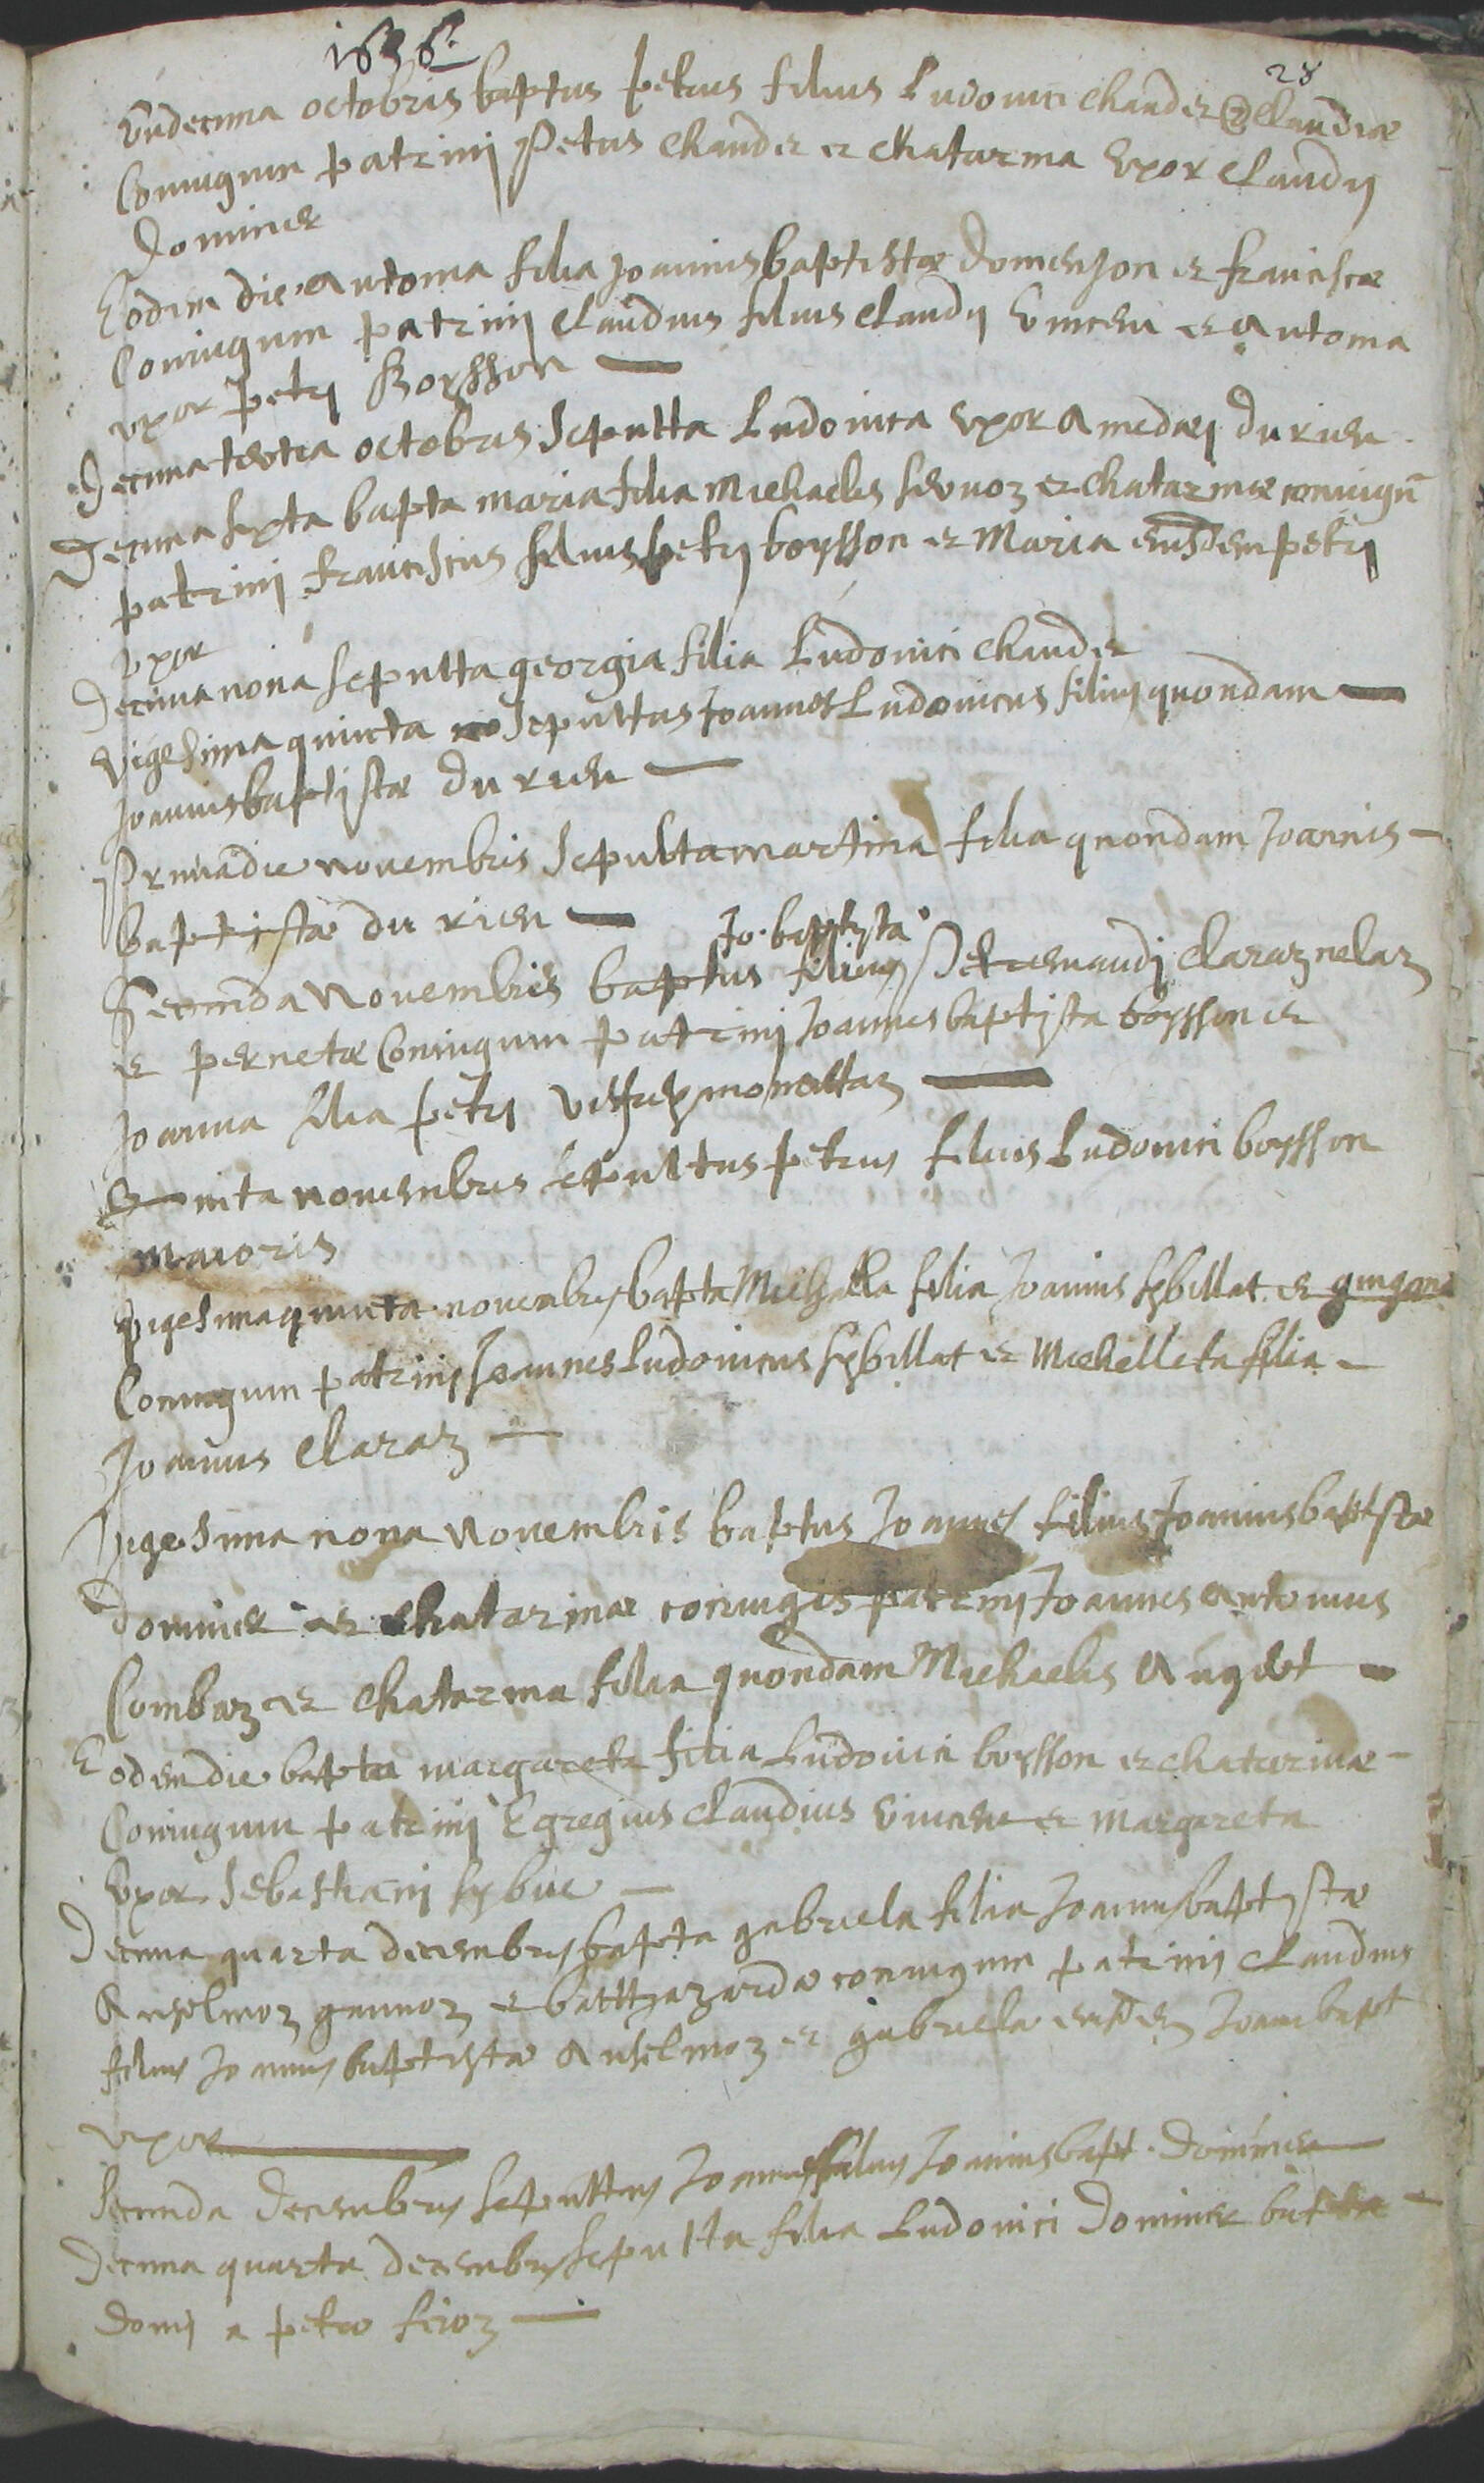 1636
28
Undecima octobris baptus petrus filius Ludovici chander & claudiæ
Coniugum patrinij Petrus chander et chatarina uxor claudij
Dominer
Eodem die Antonia filia Joannisbaptistæ Domenjon et franciscæ
Coniugum patrinij claudius filius claudij Vincen et Antonia
uxor petri Boysson
Decima tertia octobris sepulta Ludovica uxor Amedæi du rieu
Decima sexta bapta maria filia Michaelis servoz et chatarinæ coniugū
patrinij franciscus filius petrj boysson et Maria eiusdem petrj
uxor
Decima nona sepulta georgia filia Ludovici chander
Vigesima quinta sepultus Joannes Ludovicus filius quondam
Joannisbaptistæ du rieu
Prima die novembris sepulta martina filia quondam Joannis
baptistæ du rieu
Jo. baptista
Secunda Novembris baptus filius Petremandj claraz nelaz
et pernetæ Coniugum patrinj Joannes baptista boysson et
Joanna filia petrj
Quinta novembris sepultus petrus filius Ludovici boysson
maioris
Vigesima quinta novembris bapta Michaella filia Joannis sybillat et
Coniugum patrinij Joannes Ludovicus sybillat et Michelleta filia
Joannis claraz
Vigesima nona Novembris baptus Joannes filius Joannisbaptistæ
dominer et chatarinæ coniuges patrinij Joannes Antonius
Combaz et chatarina filia quondam Michaelis
Eodem die bapta margareta filia Ludovici boysson et chatarinæ
Coniugum patrinij Egregius claudius Vincen et Margareta
Uxor Sebastiani sybue
Decima quarta decembris bapta gabriela filia Joannisbaptistæ
Anselmoz gannoz et balthazardæ coniugum patrinij claudius
filius Joannisbaptistæ Anselmoz et gabriela eiusdem Joanisbapt
uxor
Secunda decembris sepultus Joannes filius Joannisbapt. Dominer
Decima quarta decembris sepulta filia Ludovici Dominer
domj a petro